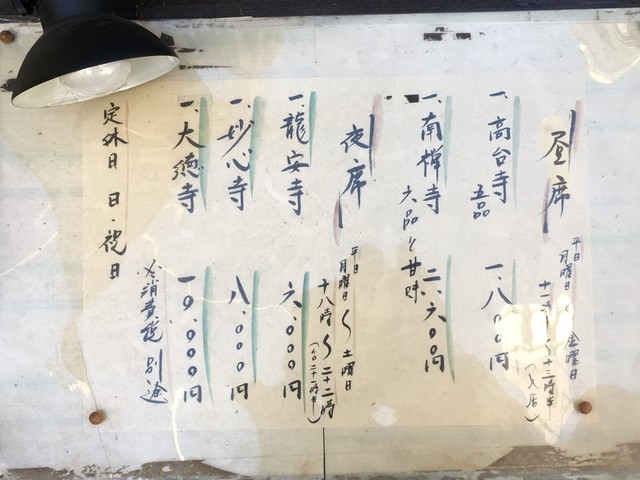 昼席
平日
月曜日〜金曜日
十一時〜十三時半
(入店)
一、高台寺 一、八〇〇円
五品
一、南禅寺 二、六〇〇円
六品と甘味
夜席
平日
月曜日〜土曜日
十八時〜二十二時
(LO二十一時半)
一、龍安寺 六、〇〇〇円
一、妙心寺 八、〇〇〇円
一、大徳寺 一〇、〇〇〇円
※消費税別途
定休日 日・祝日